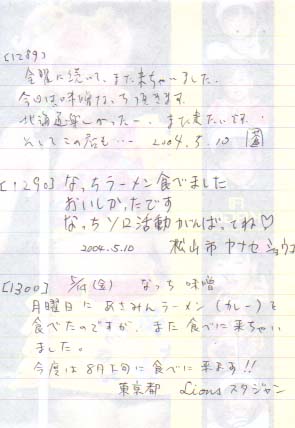 [1289]
金曜に続いて、また来ちゃいました。
今日は味噌なっち頂きます。
北海道楽しかったー。また来たいです。
そしてこの店も… 2004.5.10
[1290] なっちラーメン食べました
おいしかったです
なっちソロ活動がんばってね♡
2004.5.10 松山市 ヤナセ ショウコ
[1300] 5/14(金) なっち 味噌
月曜日に あさみんラーメン(カレー)を
食べたのですが、また食べに来ちゃい
ました。
今度は8月下旬に食べに来ます!!
東京都 Lionsスタジャン